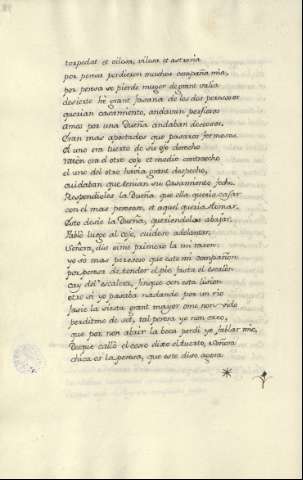 torpedat et vilesa, vilesa et astrosia
por peresa perdieron muchos compaña mia,
por peresa se pierde muger de grant valia
desirte he grant fasana de los dos peresosos
querian casamiento, andavan
amos por una Dueña andaban
Eran mas apostados que pavones fermosos
El uno era tuerto de su ojo derecho
ronco era el otro coxo et medio contrecho
el uno del otro havia grant despecho,
cuidaban que tenian su Casamiento fecho.
Respondioles la Dueña que ella queria casar
con el mas peresoso, et aquel queria tomar.
Esto desie la Dueña, queriendolos abajar,
fabló luego al coxo, cuidose adelantar.
Señora, dis oime primero la mi rason.
yo so mas peresoso que este mi compañon
por peresa de tender el pie fasta el escalon
cay del escalera, finque con esta lision
otro si yo pasaba nadando por un rio
fasie la siesta grant mayor ome non vido
perdiame de sed, tal peresa yo non crio,
que por non abrir la boca perdi yo fablar mio,
Desque calló el coxo dixo el tuerto, Señora
chica es la peresa, que este dixo agora